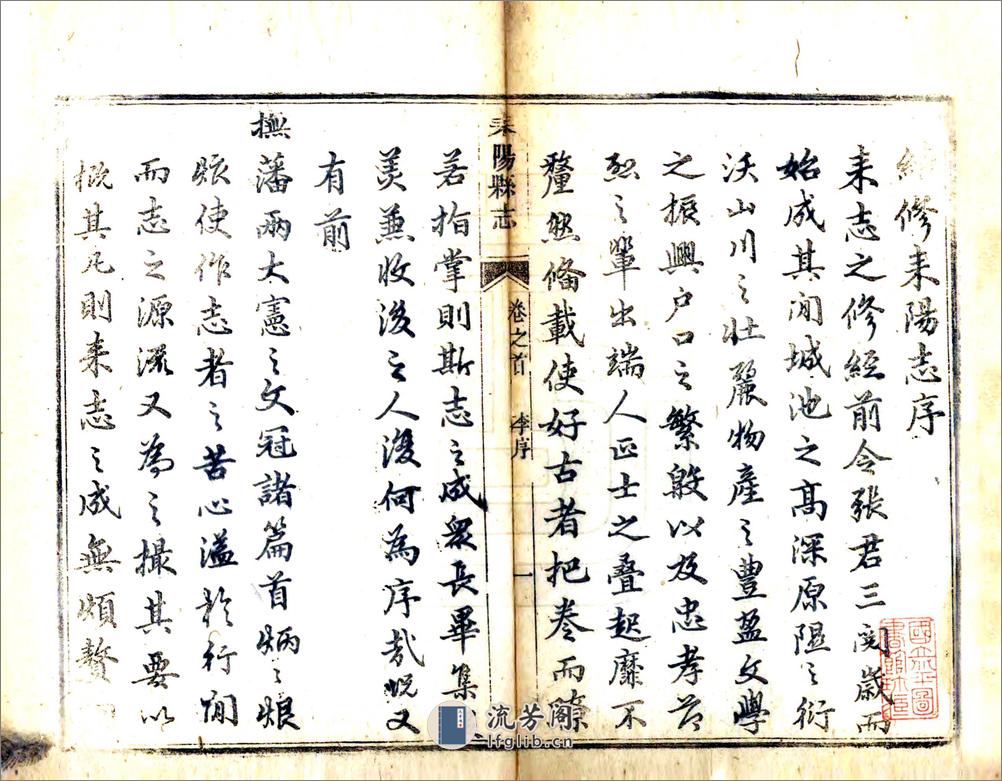 修耒陽志序
耒志之修經前令張君三閱歲而
始成其間城池之高深原隰之衍
沃山川之壯麗物產之豐盈文學
之振興戶口之繁殷以及忠孝節
烈之輩出端人正士之疊起靡不
釐然備載使好古者把卷而索
耒陽縣志
卷之首
李序
一
若指掌則斯志之成眾長畢集
美兼收後之人復何為序哉況又
有前
撫
藩兩大憲之文冠諸篇首炳之烺
烺使作志者之苦心溢於行間
而志之源深又為之撮其要以
概其凡則耒志之成無煩贅
流芳閣
lfglib.cn